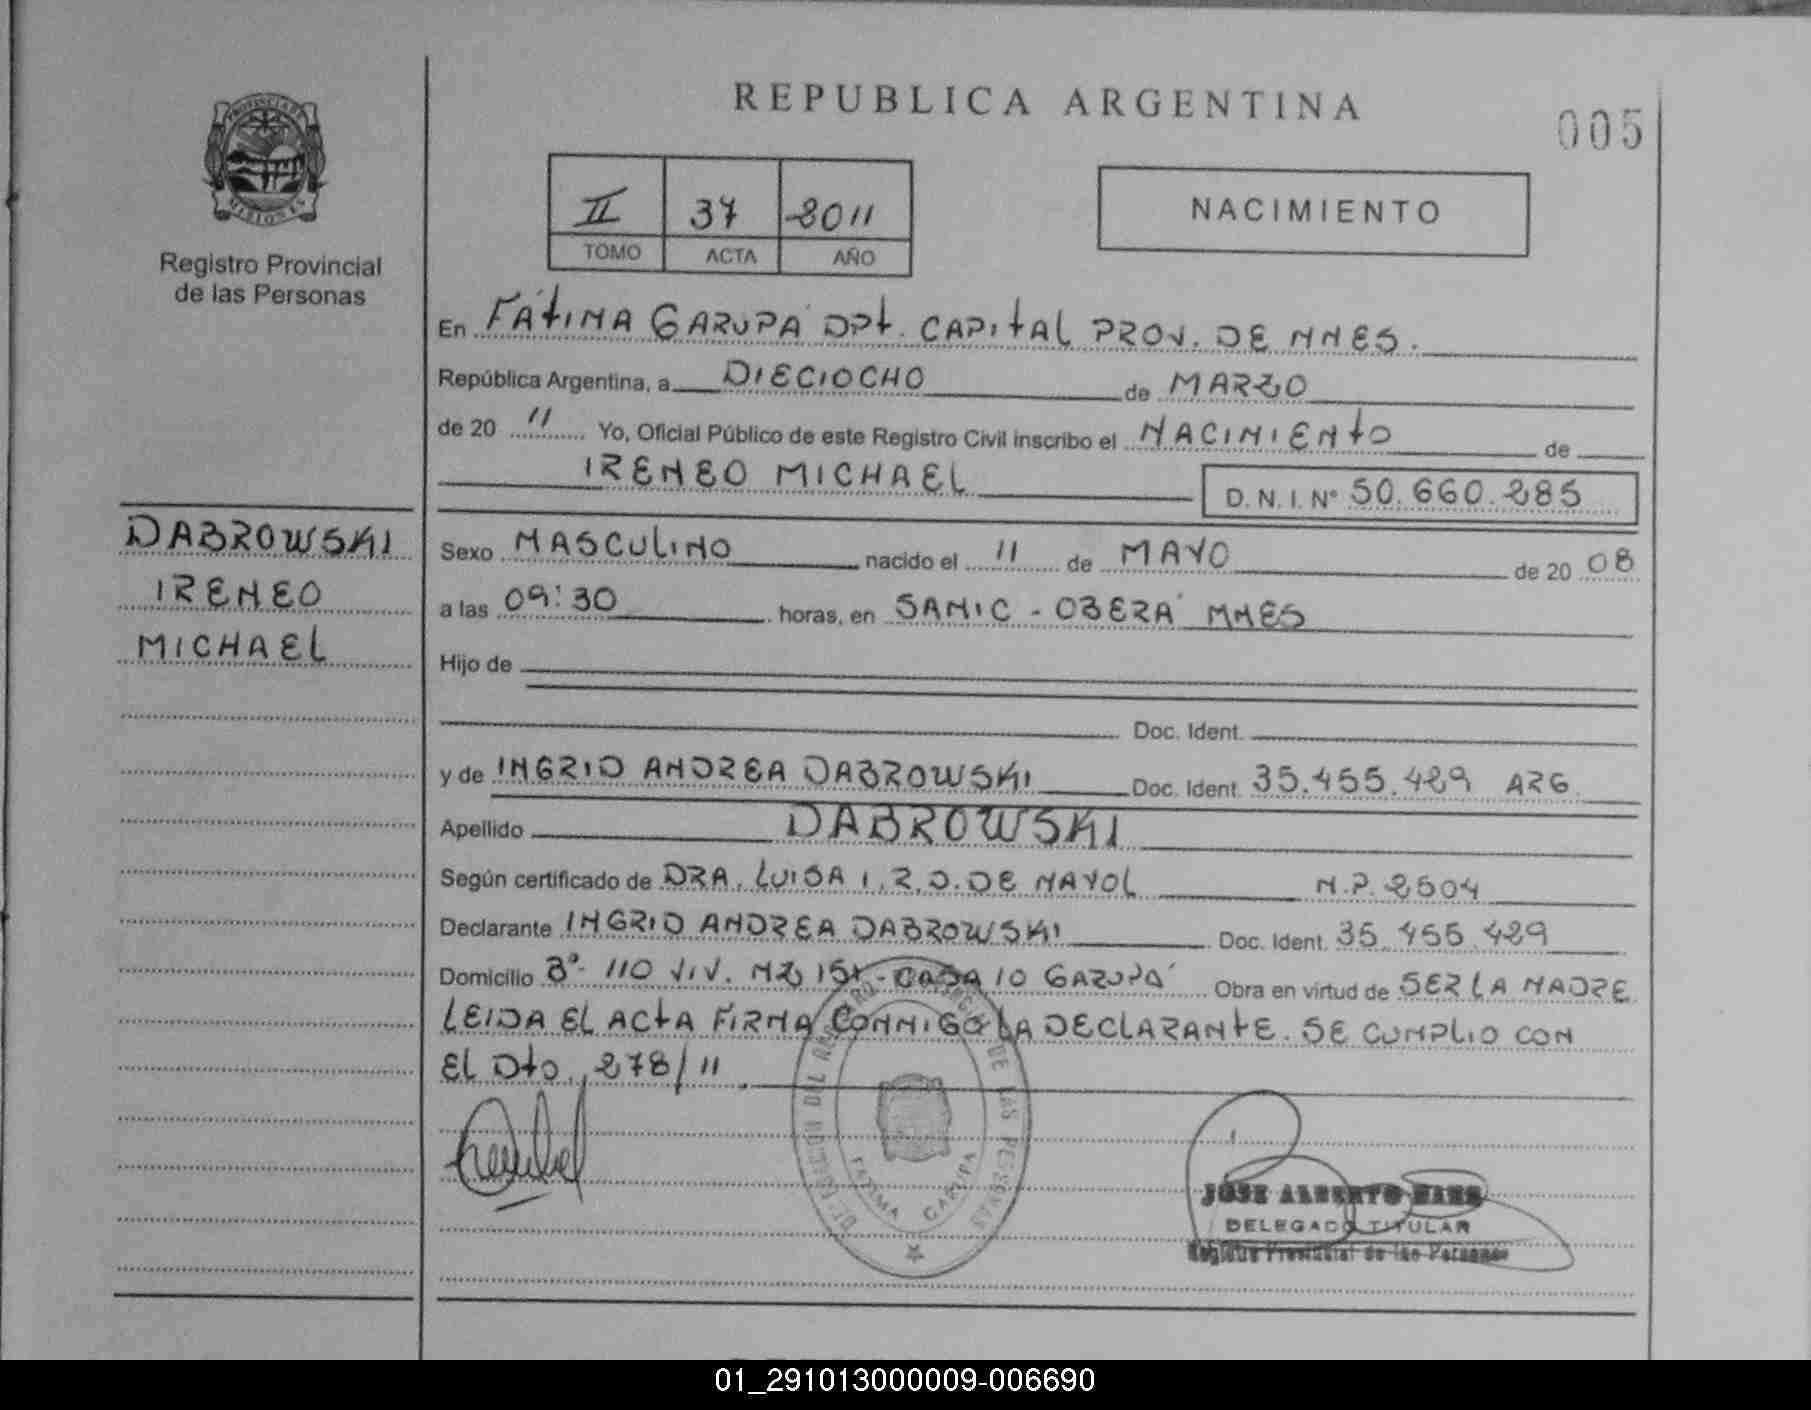 REPUBLICA ARGENTINA
005
PROVINCIA DE
MISIONES
Registro Provincial
de las Personas
II 37 2011
TOMO ACTA AÑO
NACIMIENTO
En FÁTIMA GARUPÁ DPT. CAPITAL PROV. DE MNES.
República Argentina, a DIECIOCHO de MARZO
de 20 11 Yo, Oficial Público de este Registro Civil inscribo el NACIMIENTO de
IRENEO MICHAEL D.N.I. Nº 50.660.285
DABROWSKI
IRENEO
MICHAEL
Sexo MASCULINO nacido el 11 de MAYO de 20 08
a las 09:30 horas, en SAMIC - OBERÁ MNES
Hijo de
Doc. Ident.
y de INGRID ANDREA DABROWSKI Doc. Ident. 35.455.429 ARG
Apellido DABROWSKI
Según certificado de DRA. LUISA I. R. D. DE MAYOL M.P. 2504
Declarante INGRID ANDREA DABROWSKI Doc. Ident. 35.455.429
Domicilio Bº 110 VIV. MZ CASA 10 GARUPÁ Obra en virtud de SER LA MADRE
LEIDA EL ACTA FIRMA CONMIGO LA DECLARANTE. SE CUMPLIO CON
EL DTO. 278/11.
DE LAS PERSONAS
FATIMA GARUPA
JOSE ALBERTO
DELEGADO TITULAR
Registro Provincial de las Personas
01_291013000009-006690